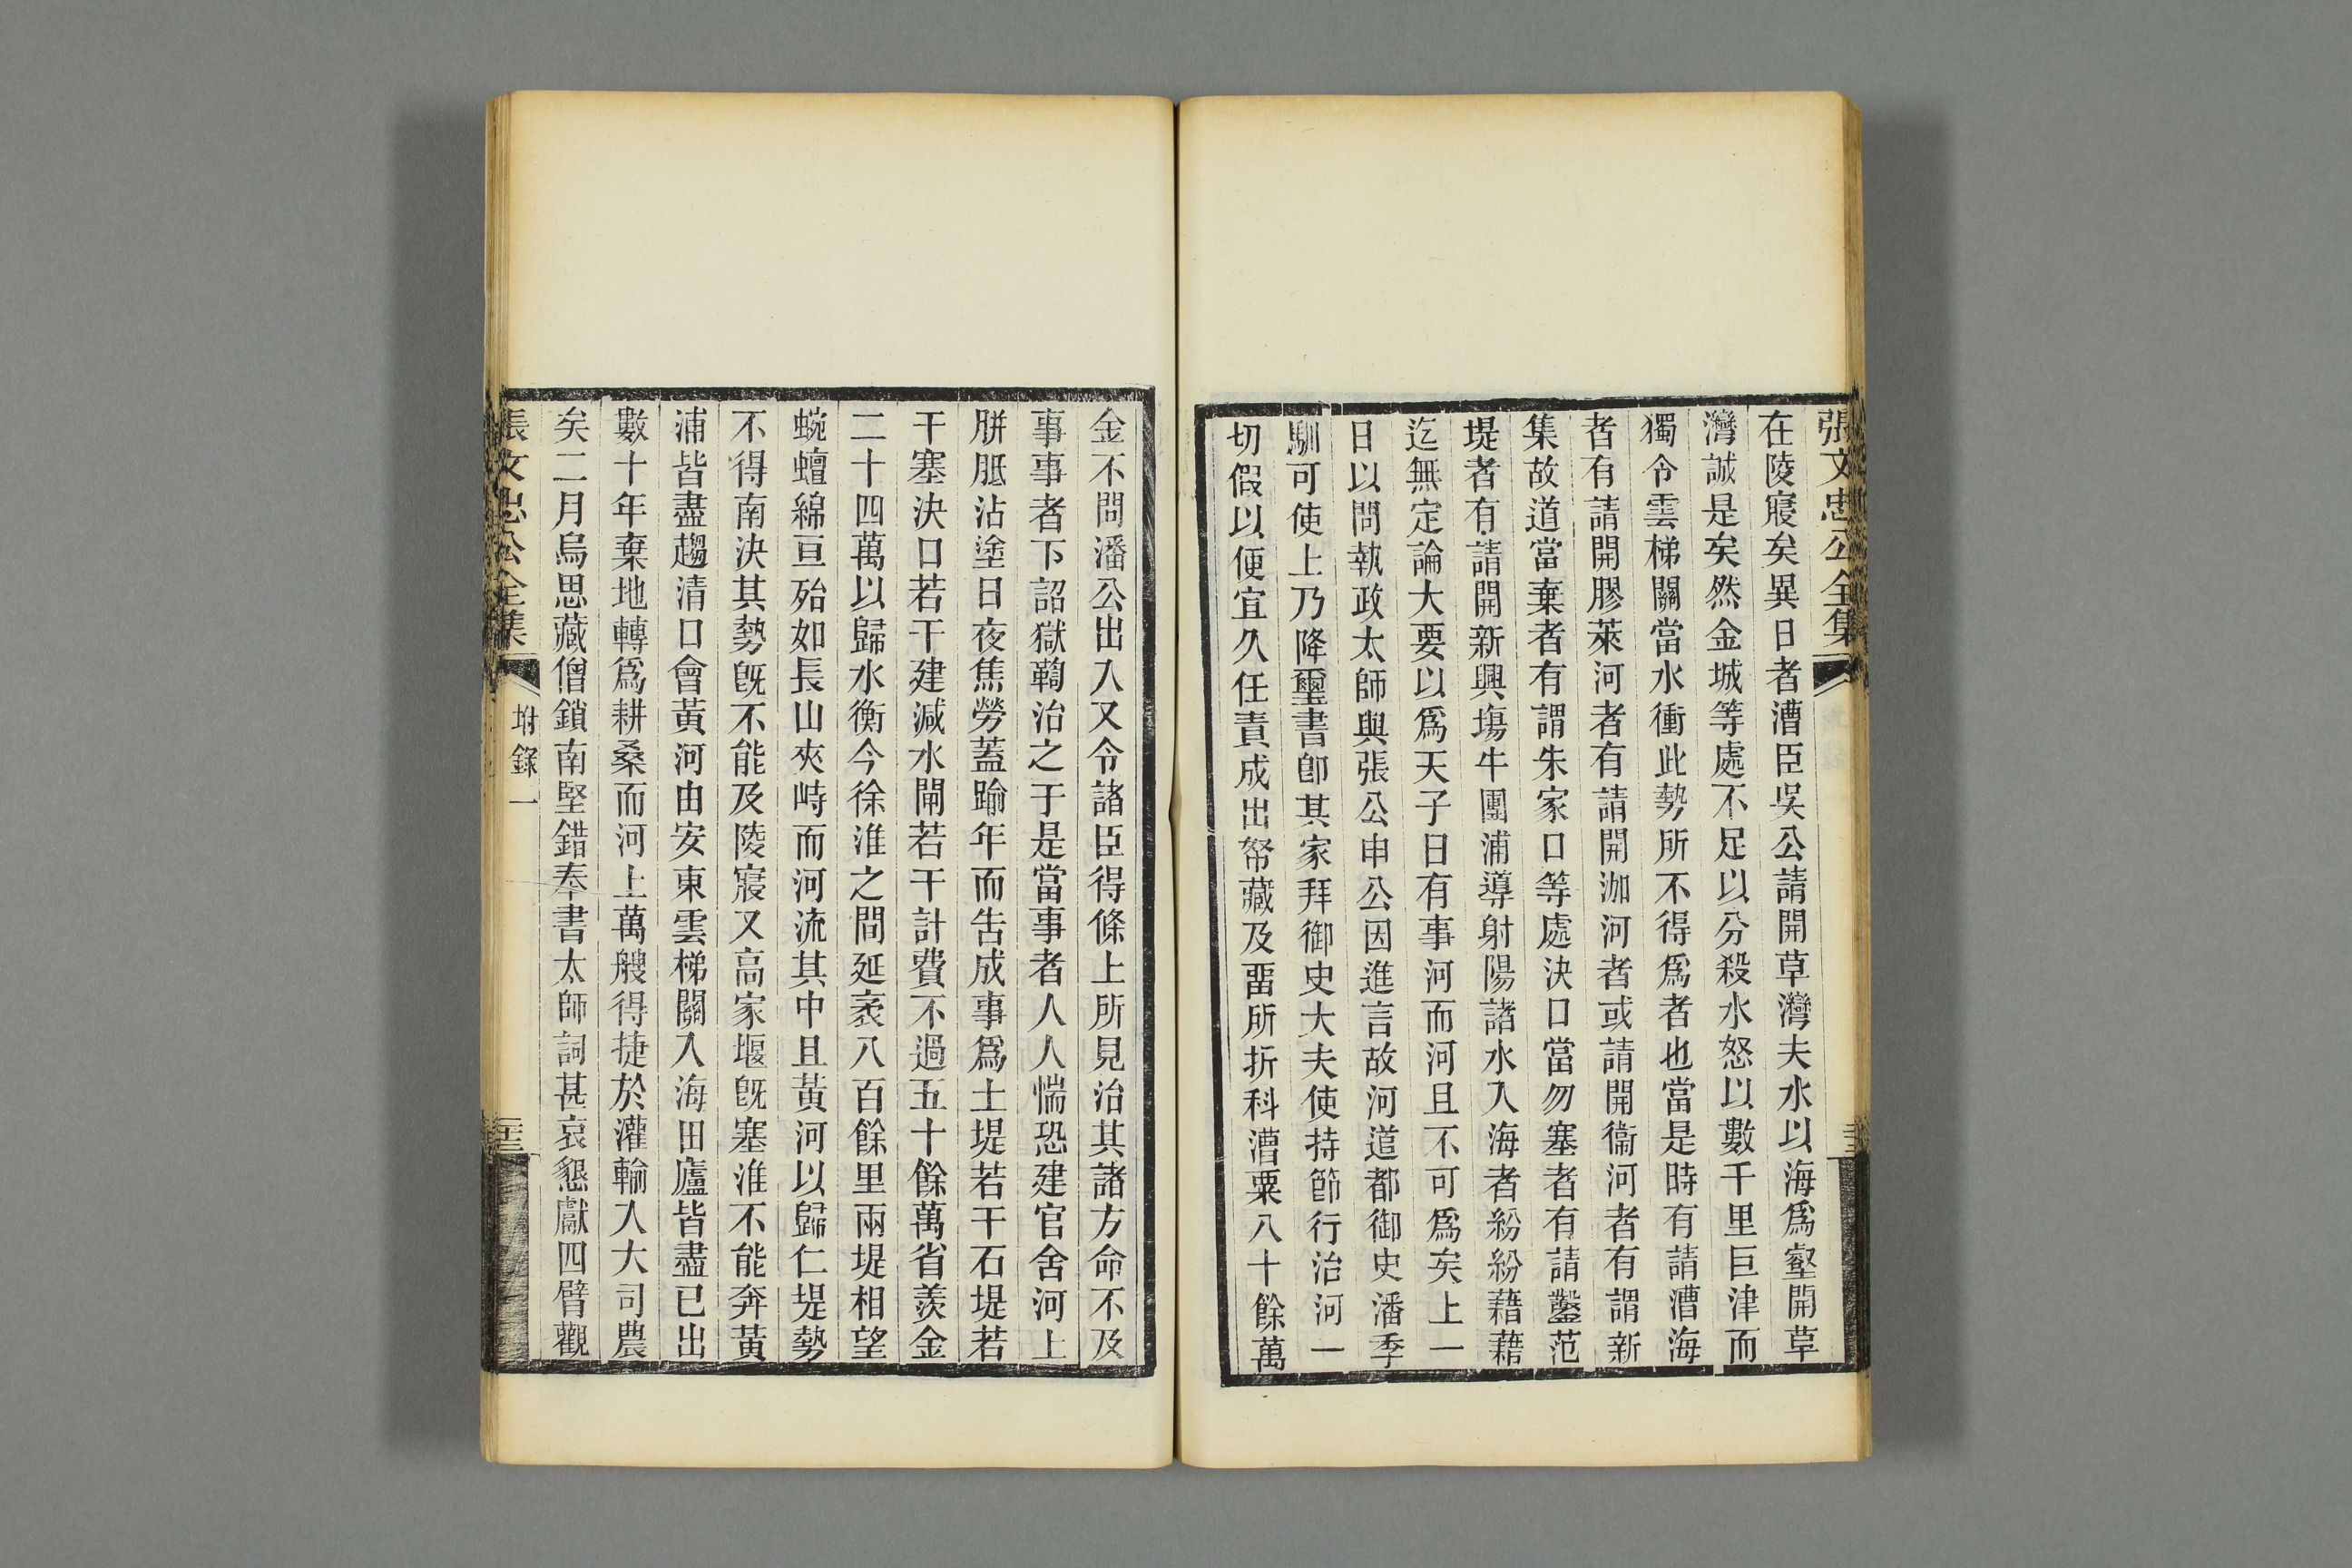 張文忠公全集
在陵寢矣異日者漕臣吳公請開草灣夫水以海爲壑開草
灣誠是矣然金城等處不足以分殺水怒以數千里巨津而
獨令雲梯關當水衝此勢所不得爲者也當是時有請漕海
者有請開膠萊河者有請開泇河者或請開衞河者有謂新
集故道當棄者有謂朱家口等處決口當勿塞者有請鑿范
堤者有請開新興塲牛團浦導射陽諸水入海者紛紛藉藉
迄無定論大要以爲天子日有事河而河且不可爲矣上一
日以問執政太師與張公申公因進言故河道都御史潘季
馴可使上乃降璽書卽其家拜御史大夫使持節行治河一
切假以便宜久任責成出帑藏及畱所折科漕粟八十餘萬
金不問潘公出入又令諸臣得條上所見治其諸方命不及
事事者下詔獄鞫治之于是當事者人人惴恐建官舍河上
胼胝沾塗日夜焦勞蓋踰年而吿成事爲土堤若干石堤若
干塞決口若干建減水閘若干計費不過五十餘萬省羨金
二十四萬以歸水衡今徐淮之間延袤八百餘里兩堤相望
蜿蟺綿亘殆如長山夾峙而河流其中且黃河以歸仁堤勢
不得南決其勢旣不能及陵寢又高家堰旣塞淮不能奔黃
浦皆盡趨清口會黃河由安東雲梯關入海田廬皆盡已出
數十年棄地轉爲耕桑而河上萬艘得捷於灌輸入大司農
矣二月烏思藏僧鎖南堅錯奉書太師詞甚哀懇獻四臂觀
張文忠公全集
坿錄一